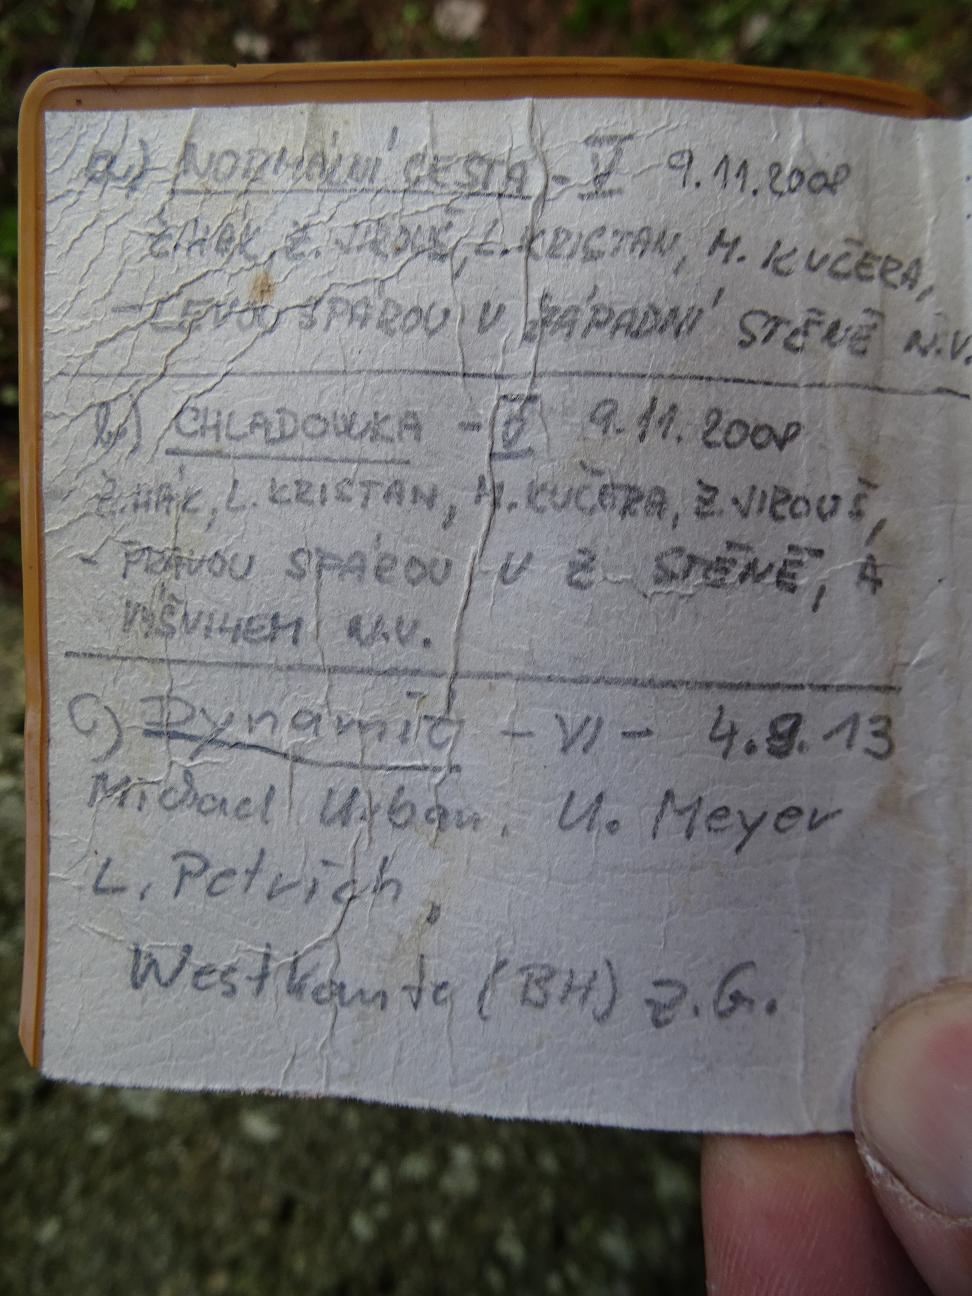 a.) NORMÁLNÍ CESTA - V 9.11.2008
Z.HÁK, Z. JIROUŠ, L. KRISTAN, M. KUČERA,
- LEVOU SPÁROU V ZÁPADNÍ STĚNĚ N.V.
b.) CHLADOWKA - V 9.11.2008
Z.HÁK, L. KRISTAN, M. KUČERA, Z. JIROUŠ,
- PRAVOU SPÁROU V Z. STĚNĚ, A
VÝŠVIHEM N.V.
c) Dynamit - VI - 4.9.13
Michael Urban, U. Meyer
L. Petrich,
Westkante (BH) z.G.